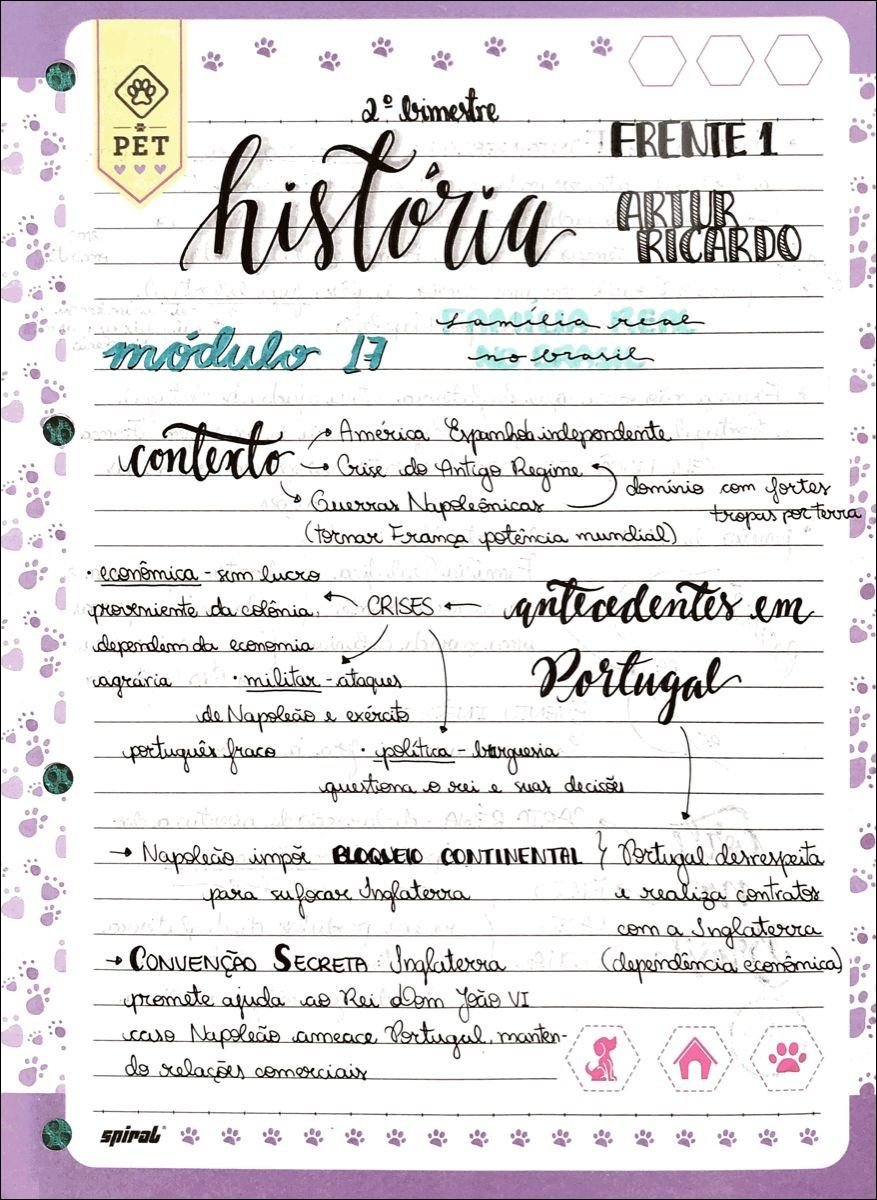 PET
2º bimestre
história
FRENTE 1
ARTUR
RICARDO
módulo 17
família real
no brasil
contexto
→ América Espanhola independente
→ Crise do Antigo Regime
→ Guerras Napoleônicas
(tornar França potência mundial)
domínio com fortes
tropas por terra
antecedentes em
Portugal
CRISES
• econômica - sem lucro
proveniente da colônia,
dependem da economia
agrária
• militar - ataques
de Napoleão e exército
português fraco
• política - burguesia
questiona o rei e suas decisões
→ Napoleão impõe BLOQUEIO CONTINENTAL
para sufocar Inglaterra
Portugal desrespeita
e realiza contratos
com a Inglaterra
(dependência econômica)
→ CONVENÇÃO SECRETA: Inglaterra
promete ajuda ao Rei Dom João VI
caso Napoleão ameace Portugal, manten-
do relações comerciais
spiral